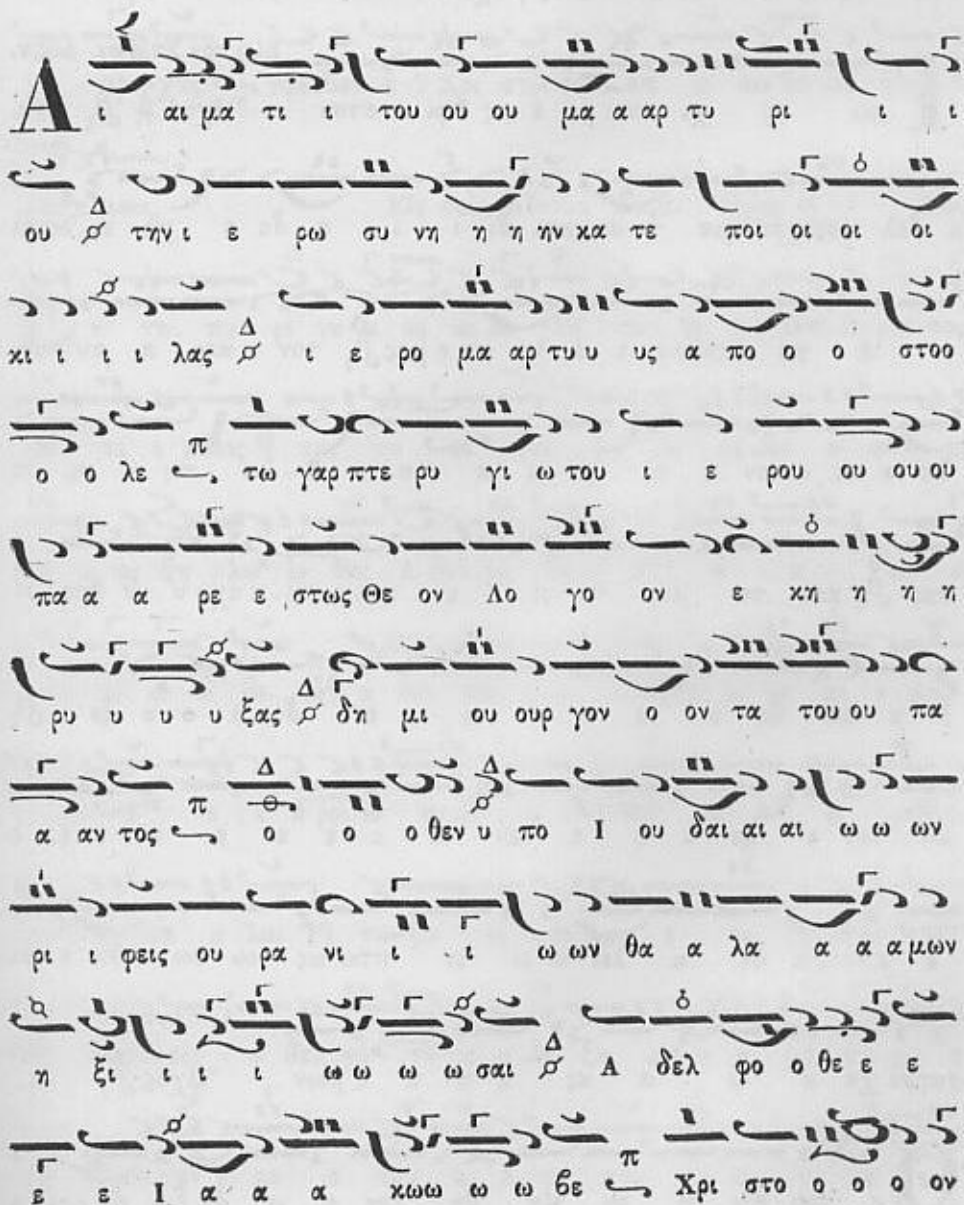 Α ι αι μα τι ι του ου ου μα α αρ τυ ρι ι ι
ου Δ την ι ε ρω συ νη η η ην κα τε ποι οι οι οι
κι ι ι ι λας Δ ι ε ρο μα αρ τυ υ υς α πο ο ο στοο
ο ο λε π τω γαρ πτε ρυ γι ω του ι ε ρου ου ου ου
πα α α ρε ε στως Θε ον Λο γο ον ε κη η η η
ρυ υ υ υ ξας Δ δη μι ου ουρ γον ο ον τα του ου πα
α αν τος π ο ο ο θεν υ πο Ι ου δαι αι αι ω ω ων
ρι ι φεις ου ρα νι ι ι ω ων θα α λα α α α μων
η ξι ι ι ι ω ω ω ω σαι Δ Α δελ φο ο θε ε ε
ε ε Ι α α α κωω ω ω βε π Χρι στο ο ο ο ον